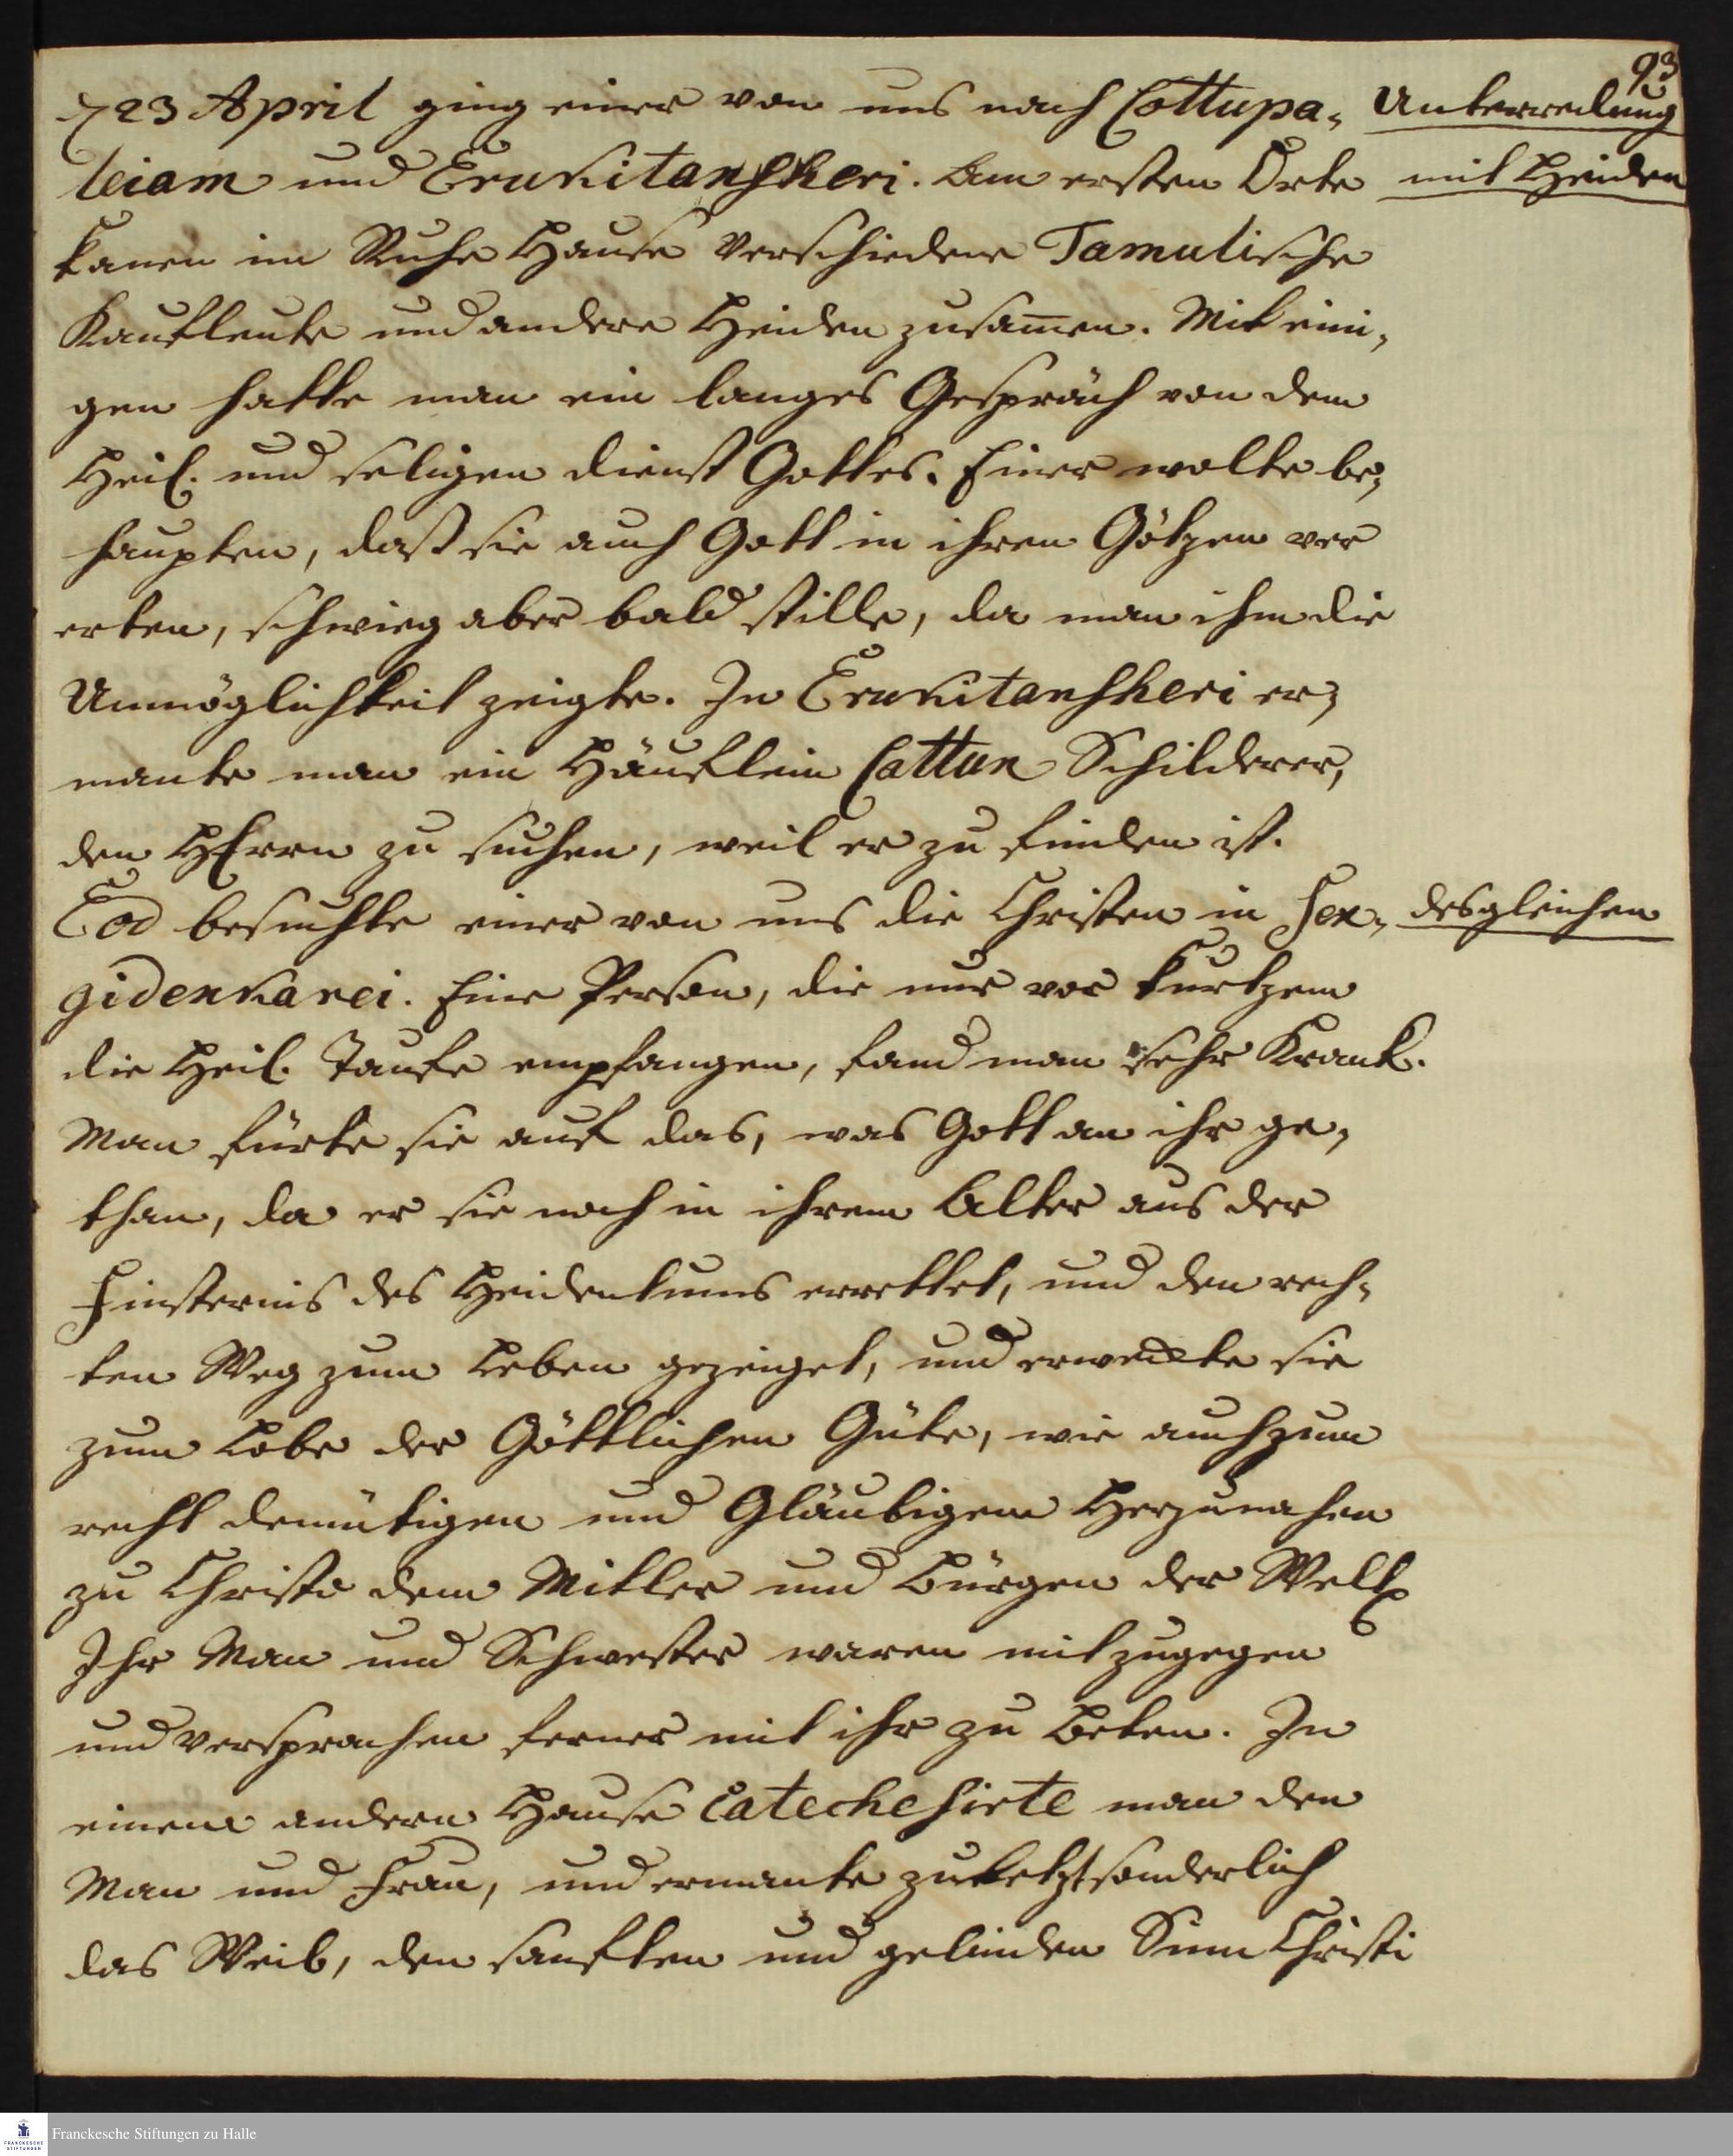 93
d 23 April ging einer von uns nach Cottupa-
leiam und Erukitanscheri. Am ersten Orte
kamen im Ruhe Hause verschiedene Tamulische
Kaufleute und andere Heiden zusam̄en. Mit eini-
gen hatte man ein langes Gespräch von dem
Heil. und seligen dienst Gottes. Einer wolte be-
haupten, daß sie auch Gott in ihren Götzen ver
erten, schwieg aber bald stille, da man ihm die
Unmöglichkeit zeigte. In Erukitanscheri er-
mante man ein Häuflein Cattun Schilderer,
den HErrn zu suchen, weil er zu finden ist.
Eod besuchte einer von uns die Christen in Sen-
gidenkarei. Eine Person, die nur vor kurtzem
die Heil. Taufe empfangen, fand man sehr Kranck.
Man fürte sie auf das, was Gott an ihr ge-
than, da er sie noch in ihrem Alter aus der
Finsternis des Heidentums errettet, und den rech-
ten Weg zum Leben gezeiget, und erweckte sie
zum Lobe der Göttlichen Güte, wie auch zum
recht demütigen und Gläubigem Herzunahen
zu Christo dem Mitler und Bürgen der Welt
Ihr Man und Schwester waren mit zugegen
und versprachen ferner mit ihr zu beten. In
einem andern Hause catechesirte man den
Man und Frau, und ermante zuletzt sonderlich
das Weib, den sanften und gelinden Sinn Christi
Unterredung
mit Heiden
desgleichen
Franckesche Stiftungen zu Halle
FRANCKESCHE
STIFTUNGEN